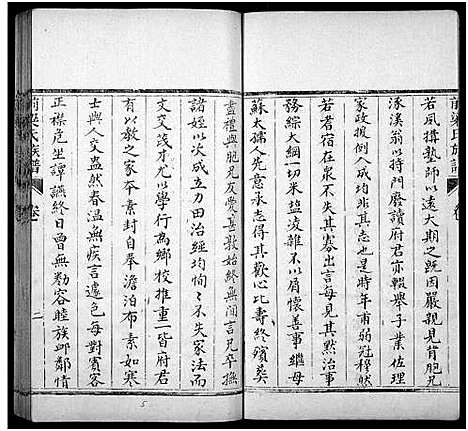 若夙搆塾師以遠大期之既因嚴親見背胞兄
涿溪翁以持門廢讀府君亦輟舉子業佐理
家政援例入成均非其志也是時年甫弱冠穆然
若耆宿在泉不失其寡出言不見其黠治事
務綜大綱一切米鹽凌雜不以屑懷善事繼母
蘇太孺人先意承志得其歡心比壽終殯葬
盡禮與胞兄友善敦怡終無間言兄卒撫
諸姪以次成立力田治經均恂恂不失家法而
文交茂才尤以學行為鄉校推重一皆府君
有以教之家本素封自奉澹泊布素如寒
士與人交盎然春温無疾言遽色每對賓客
正襟危坐譚讌終日曾無勌容睦族邮鄰情
前梁氏族譜
卷一
二
5